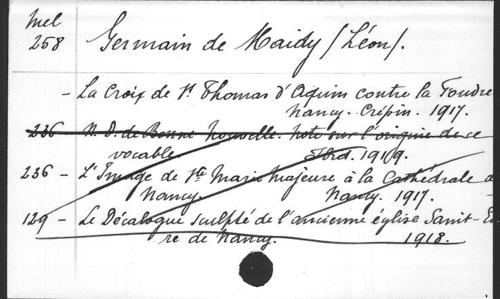 Mel
258 Germain de Maidy (Léon).
- La Croix de St Thomas d'Aquin contre la Foudre
Nancy. Crépin. 1917.
236 - N. D. de Bonne Nouvelle. Note sur l'origine de ce
vocable Ibid. 1919.
236 - L'Image de Ste Marie Majeure à la Cathédrale d
Nancy. Nancy. 1917.
129 - Le Décalogue sculpté de l'ancienne église Saint-E
re de Nancy. 1918.